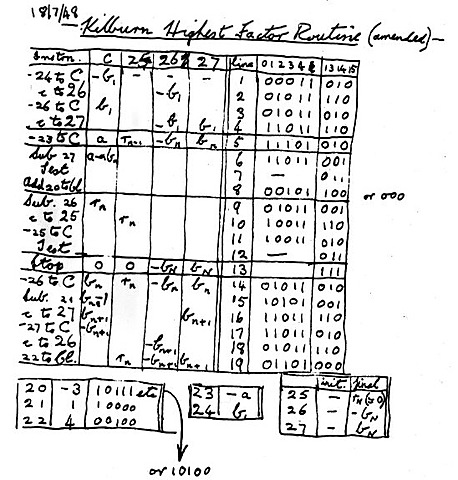 18/7/48
Kilburn Highest Factor Routine (amended)-
Instrn. C 25 26 27 line 0 1 2 3 4 13 14 15
-24 to C -b₁ - - - 1 00011 010
c to 26 -b₁ 2 01011 110
-26 to C b₁ 3 01011 010
c to 27 -b₁ b₁ 4 11011 110
-23 to C a rₙ₋₁ -bₙ bₙ 5 11101 010
Sub. 27 a-bₙ 6 11011 001
Test 7 - 011
add 20 to bl. 8 00101 100 or 000
Sub. 26 rₙ 9 01011 001
c to 25 rₙ 10 10011 110
-25 to C 11 10011 010
Test 12 - 011
Stop 0 0 -b_N b_N 13 111
-26 to C bₙ rₙ -bₙ bₙ 14 01011 010
Sub. 21 bₙ₊₁ 15 10101 001
c to 27 bₙ₊₁ bₙ₊₁ 16 11011 110
-27 to C -bₙ₊₁ 17 11011 010
c to 26 -bₙ₊₁ 18 01011 110
22 to bl. rₙ -bₙ₊₁ bₙ₊₁ 19 01101 000
20 -3 10111 etc
21 1 10000
22 4 00100
or 10100
23 -a
24 b₁
init. final
25 - r_N (=0)
26 - -b_N
27 - b_N